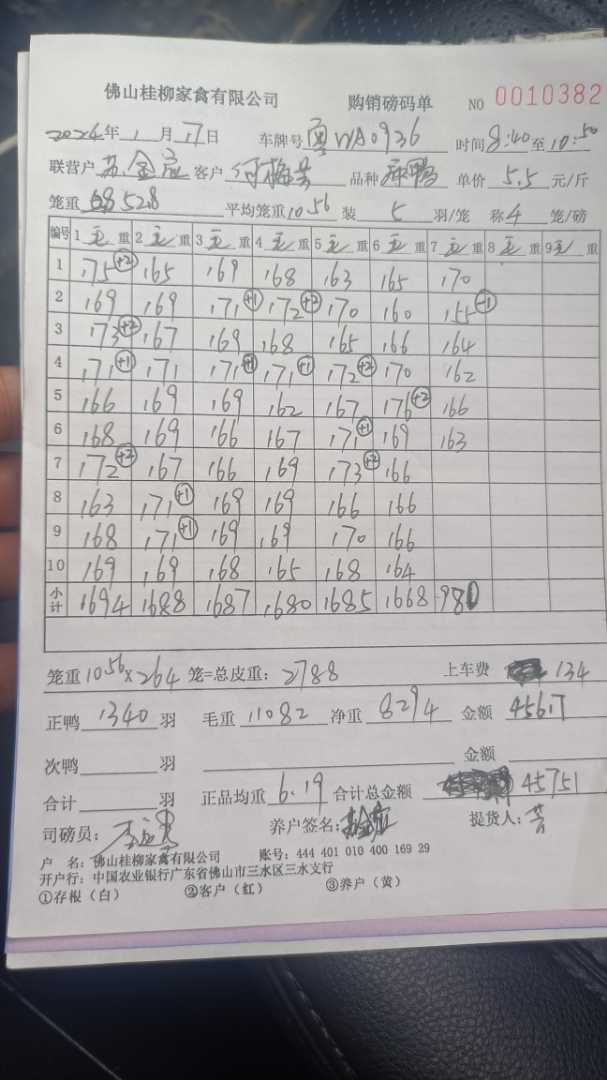 佛山桂柳家禽有限公司 购销磅码单 NO 0010382
2024年 1 月 17 日 车牌号 粤WA0936 时间 8:40 至 10:50
联营户 苏金 客户 品种 麻鸭 单价 5.5 元/斤
笼重 528 平均笼重 10.56 装 5 羽/笼 称 4 笼/磅
编号 1 毛 重 2 毛 重 3 毛 重 4 毛 重 5 毛 重 6 毛 重 7 毛 重 8 毛 重 9 毛 重
1 175 +2 165 169 168 163 165 170
2 169 169 171 +1 172 +2 170 160 155 -1
3 173 +2 167 169 168 165 166 164
4 171 +1 171 171 +1 171 +1 172 +2 170 162
5 166 169 169 162 167 176 +2 166
6 168 169 166 167 171 +1 169 163
7 172 +2 167 166 169 173 +2 166
8 163 171 +1 169 169 166 166
9 168 171 +1 169 169 170 166
10 169 169 168 165 168 164
小计 1694 1688 1687 1680 1685 1668 980
笼重 10.56 × 264 笼=总皮重: 2788 上车费 134
正鸭 1340 羽 毛重 11082 净重 8294 金额 45617
次鸭 羽 金额
合计 羽 正品均重 6.19 合计总金额 45751
司磅员: 养户签名: 提货人: 芳
户 名: 佛山桂柳家禽有限公司 账号: 444 401 010 400 169 29
开户行: 中国农业银行广东省佛山市三水区三水支行
①存根（白） ②客户（红） ③养户（黄）